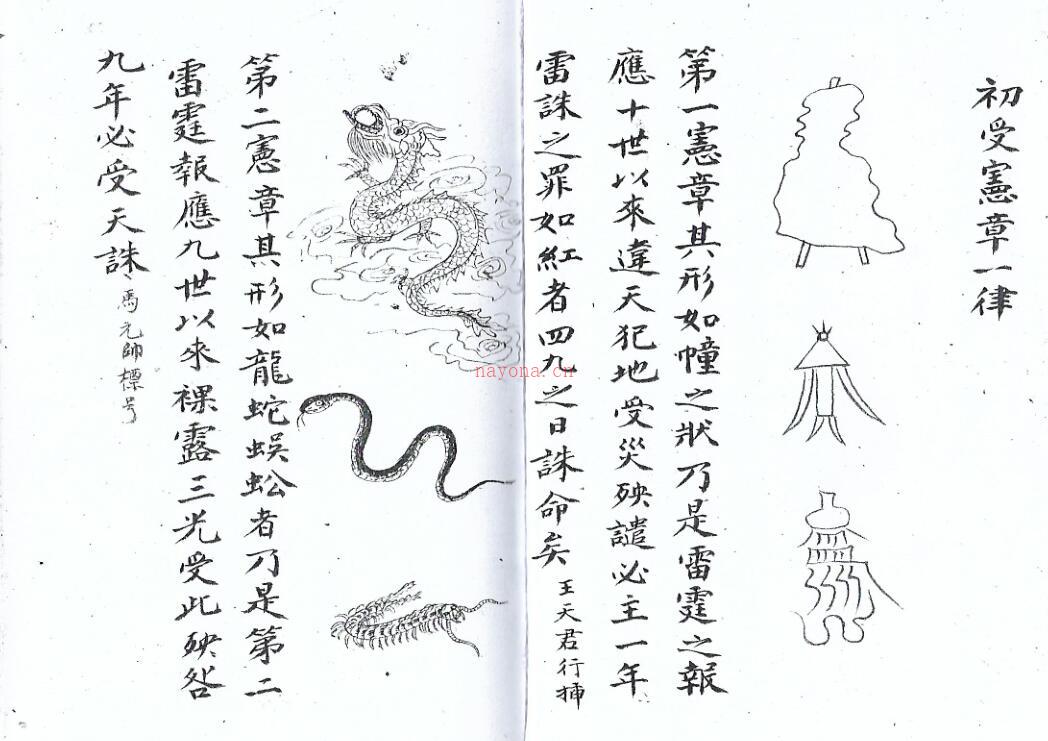 初受憲章一律
第一憲章其形如幢之狀乃是雷霆之報
應十世以來違天犯地受災殃譴必主一年
雷誅之罪如紅者四九之日誅命矣
王天君行
第二憲章其形如龍蛇蜈蚣者乃是第二
雷霆報應九世以來裸露三光受此殃咎
九年必受天誅
馬元帥標号
nayona.cn